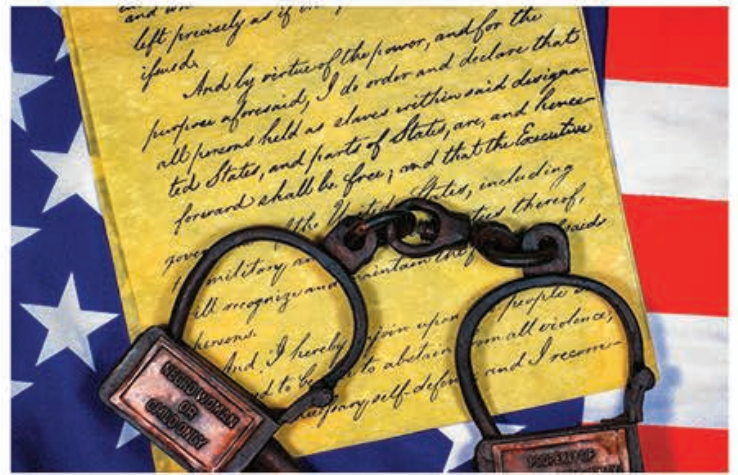 and
left precisely as if
ifsued.
And by virtue of the power, and for the
purpose aforesaid, I do order and declare that
all persons held as slaves within said designa-
ted States, and parts of States, are, and hence-
forward shall be free; and that the Executive
of the United States, including
military
recognize and maintain the
persons.
And I hereby join upon people
to abstain from all violence,
self-defen and I recom-
NEGRO WOMAN
OR
CHILD ONLY
PROPERTY OF